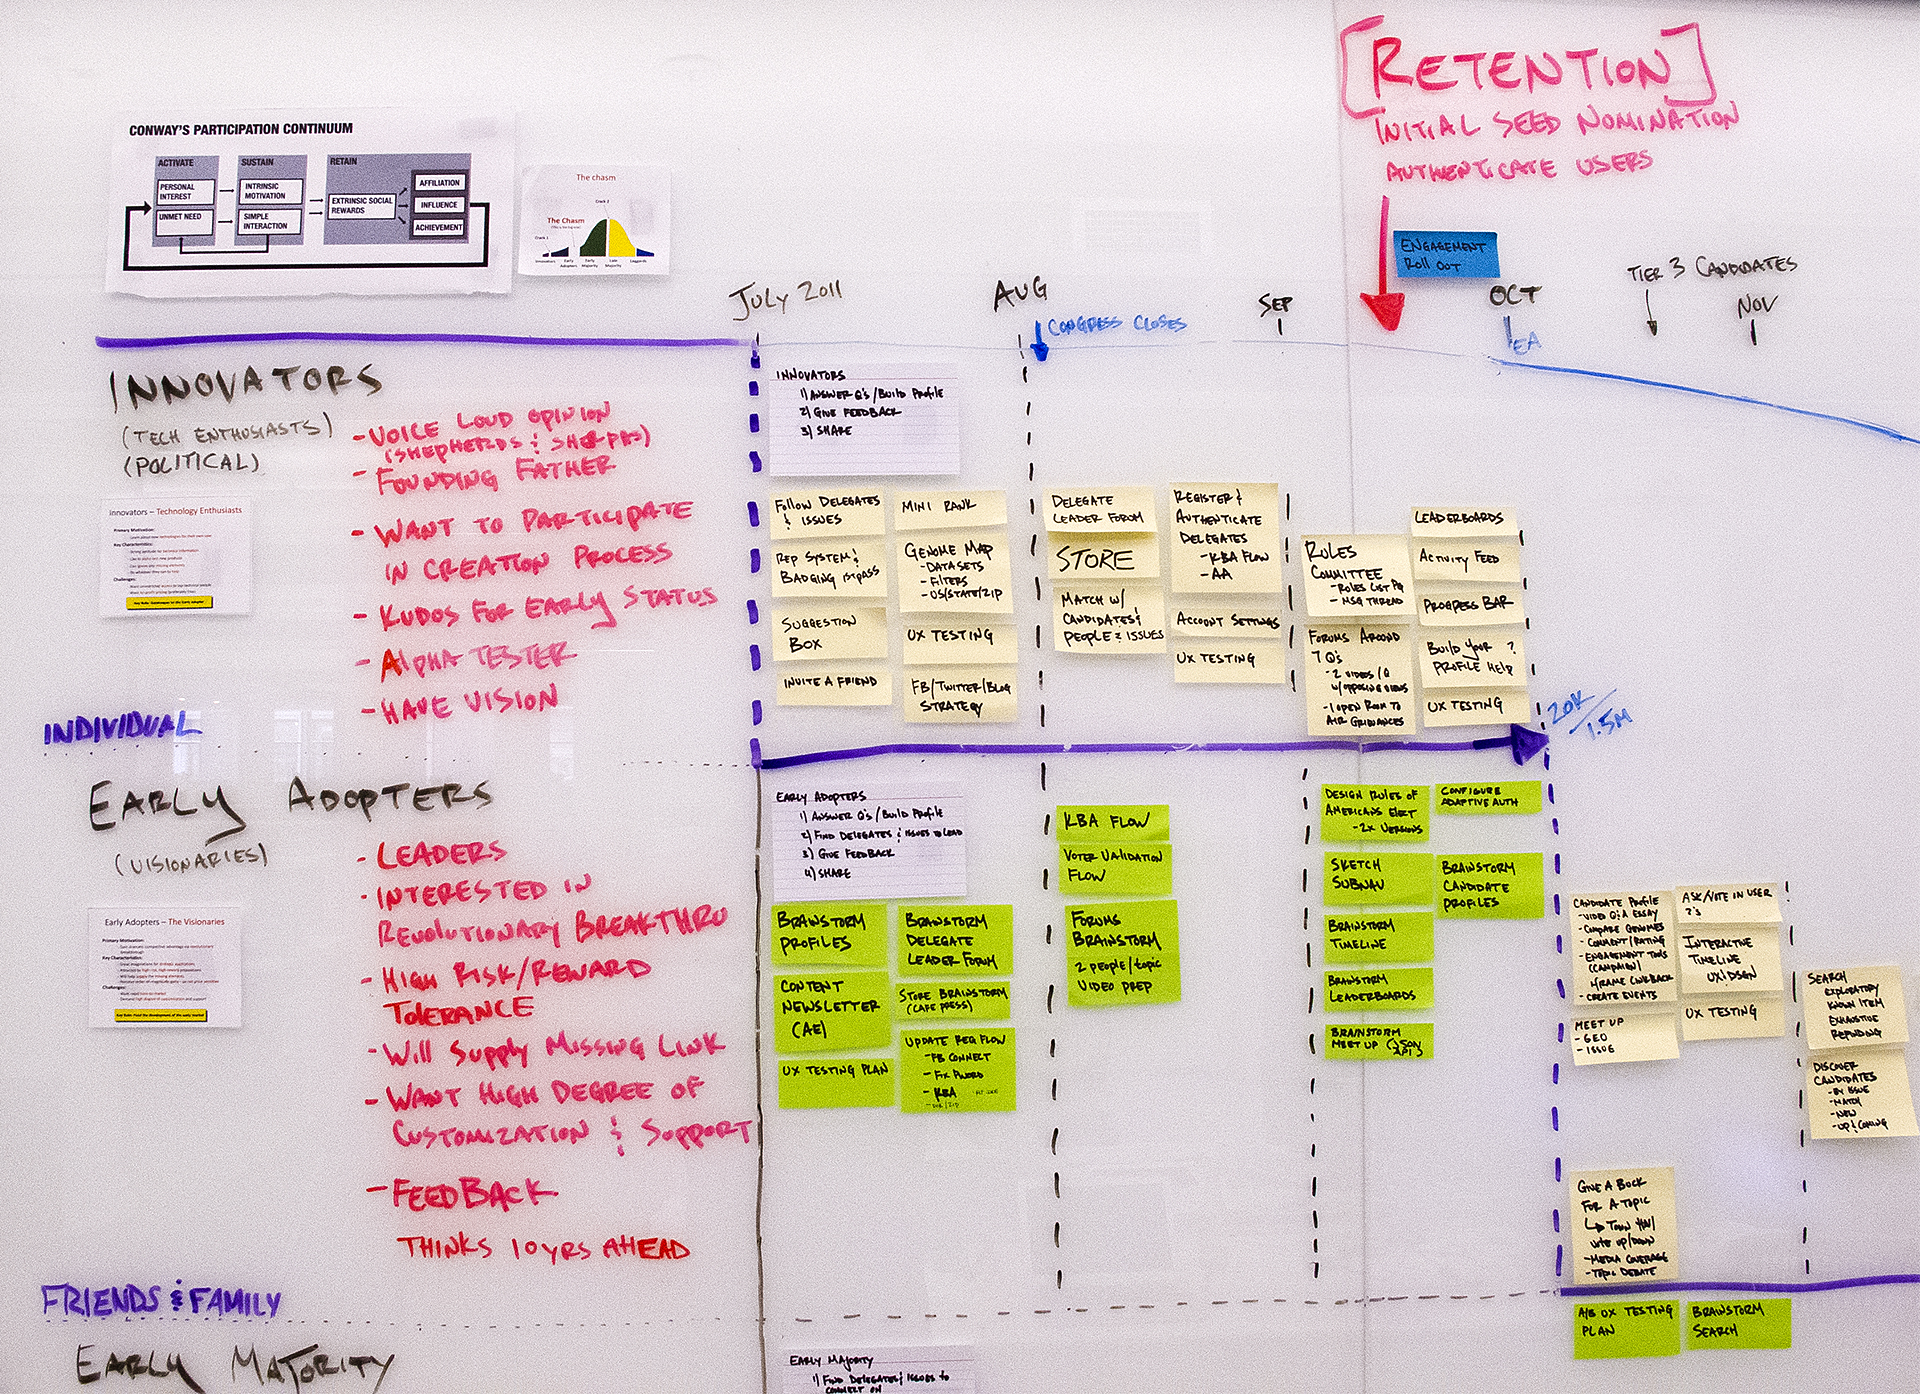 [RETENTION]
INITIAL SEED NOMINATION
AUTHENTICATE USERS
CONWAY'S PARTICIPATION CONTINUUM
ACTIVATE
SUSTAIN
RETAIN
PERSONAL
INTEREST
UNMET NEED
INTRINSIC
MOTIVATION
SIMPLE
INTERACTION
EXTRINSIC SOCIAL
REWARDS
AFFILIATION
INFLUENCE
ACHIEVEMENT
The chasm
Crack 2
The Chasm
Crack 1
Innovators
Early
Adopters
Early
Majority
Late
Majority
Laggards
ENGAGEMENT
ROLL OUT
JULY 2011
AUG
CONGRESS CLOSES
SEP
OCT
EA
TIER 3 CANDIDATES
NOV
INNOVATORS
(TECH ENTHUSIASTS)
(POLITICAL)
- VOICE LOUD OPINION
(SHEPHERDS & SHERPAS)
- FOUNDING FATHER
- WANT TO PARTICIPATE
IN CREATION PROCESS
- KUDOS FOR EARLY STATUS
- ALPHA TESTER
- HAVE VISION
Innovators – Technology Enthusiasts
Primary Motivation:
Key Characteristics:
Challenges:
INNOVATORS
1) ANSWER Q'S/BUILD PROFILE
2) GIVE FEEDBACK
3) SHARE
FOLLOW DELEGATES
& ISSUES
MINI RANK
REP SYSTEM &
BADGING
GENOME MAP
- DATA SETS
- FILTERS
- US/STATE/ZIP
SUGGESTION
BOX
UX TESTING
INVITE A FRIEND
FB/TWITTER/BLOG
STRATEGY
DELEGATE
LEADER FORUM
STORE
MATCH W/
CANDIDATES &
PEOPLE & ISSUES
REGISTER &
AUTHENTICATE
DELEGATES
- KBA FLOW
- AA
ACCOUNT SETTINGS
UX TESTING
RULES
COMMITTEE
- RULES LIST PG
- MSG THREAD
FORUMS AROUND
7 Q'S
- 2 VIDEOS/Q
W/OPPOSING VIEWS
- 1 OPEN ROOM TO
AIR GRIEVANCES
LEADERBOARDS
ACTIVITY FEED
PROGRESS BAR
BUILD YOUR ?
PROFILE HELP
UX TESTING
20K/1.5M
INDIVIDUAL
EARLY ADOPTERS
(VISIONARIES)
- LEADERS
- INTERESTED IN
REVOLUTIONARY BREAKTHRU
- HIGH RISK/REWARD
TOLERANCE
- WILL SUPPLY MISSING LINK
- WANT HIGH DEGREE OF
CUSTOMIZATION & SUPPORT
- FEEDBACK
THINKS 10 YRS AHEAD
Early Adopters – The Visionaries
Primary Motivation:
Key Characteristics:
Challenges:
EARLY ADOPTERS
1) ANSWER Q'S/BUILD PROFILE
2) FIND DELEGATES & ISSUES TO LEAD
3) GIVE FEEDBACK
4) SHARE
BRAINSTORM
PROFILES
BRAINSTORM
DELEGATE
LEADER FORUM
CONTENT
NEWSLETTER
(AE)
STORE BRAINSTORM
(CAFE PRESS)
UX TESTING PLAN
UPDATE REG FLOW
- FB CONNECT
- FIX PWORD
- KBA
KBA FLOW
VOTER VALIDATION
FLOW
FORUMS
BRAINSTORM
2 PEOPLE/TOPIC
VIDEO PREP
DESIGN RULES OF
AMERICANS ELECT
- 2X VERSIONS
CONFIGURE
ADAPTIVE AUTH
SKETCH
SUBNAV
BRAINSTORM
CANDIDATE
PROFILES
BRAINSTORM
TIMELINE
BRAINSTORM
LEADERBOARDS
BRAINSTORM
MEET UP (JSON
API'S)
CANDIDATE PROFILE
- VIDEO Q&A ESSAY
- COMPARE GENOMES
- COMMENT/RATING
- ENGAGEMENT TOOLS
(CAMPAIGN)
- CREATE EVENTS
ASK/VOTE IN USER
?'S
INTERACTIVE
TIMELINE
UX/DSGN
UX TESTING
MEET UP
- GEO
- ISSUE
SEARCH
EXPLORATORY
KNOWN ITEM
EXHAUSTIVE
REFINDING
DISCOVER
CANDIDATES
- BY ISSUE
- MATCH
- NEW
- UP & COMING
GIVE A BUCK
FOR A TOPIC
VOTE UP/DOWN
- MEDIA COVERAGE
- TOPIC DEBATE
FRIENDS & FAMILY
EARLY MAJORITY
EARLY MAJORITY
1) FIND DELEGATES & ISSUES TO
CONNECT ON
A/B UX TESTING
PLAN
BRAINSTORM
SEARCH